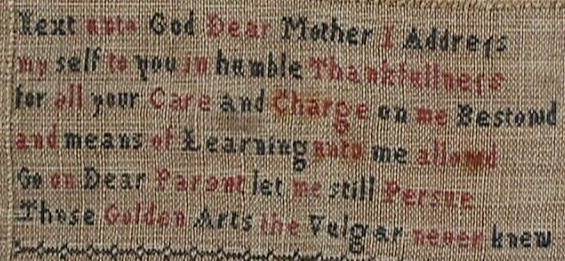 Next unto God Dear Mother I Addreſs
my self to you in humble Thankfullneſs
for all your Care and Charge on me Bestowd
and means of Learning unto me allowd
Go on Dear Parent let me still Persue
Those Golden Arts the Vulgar never knew